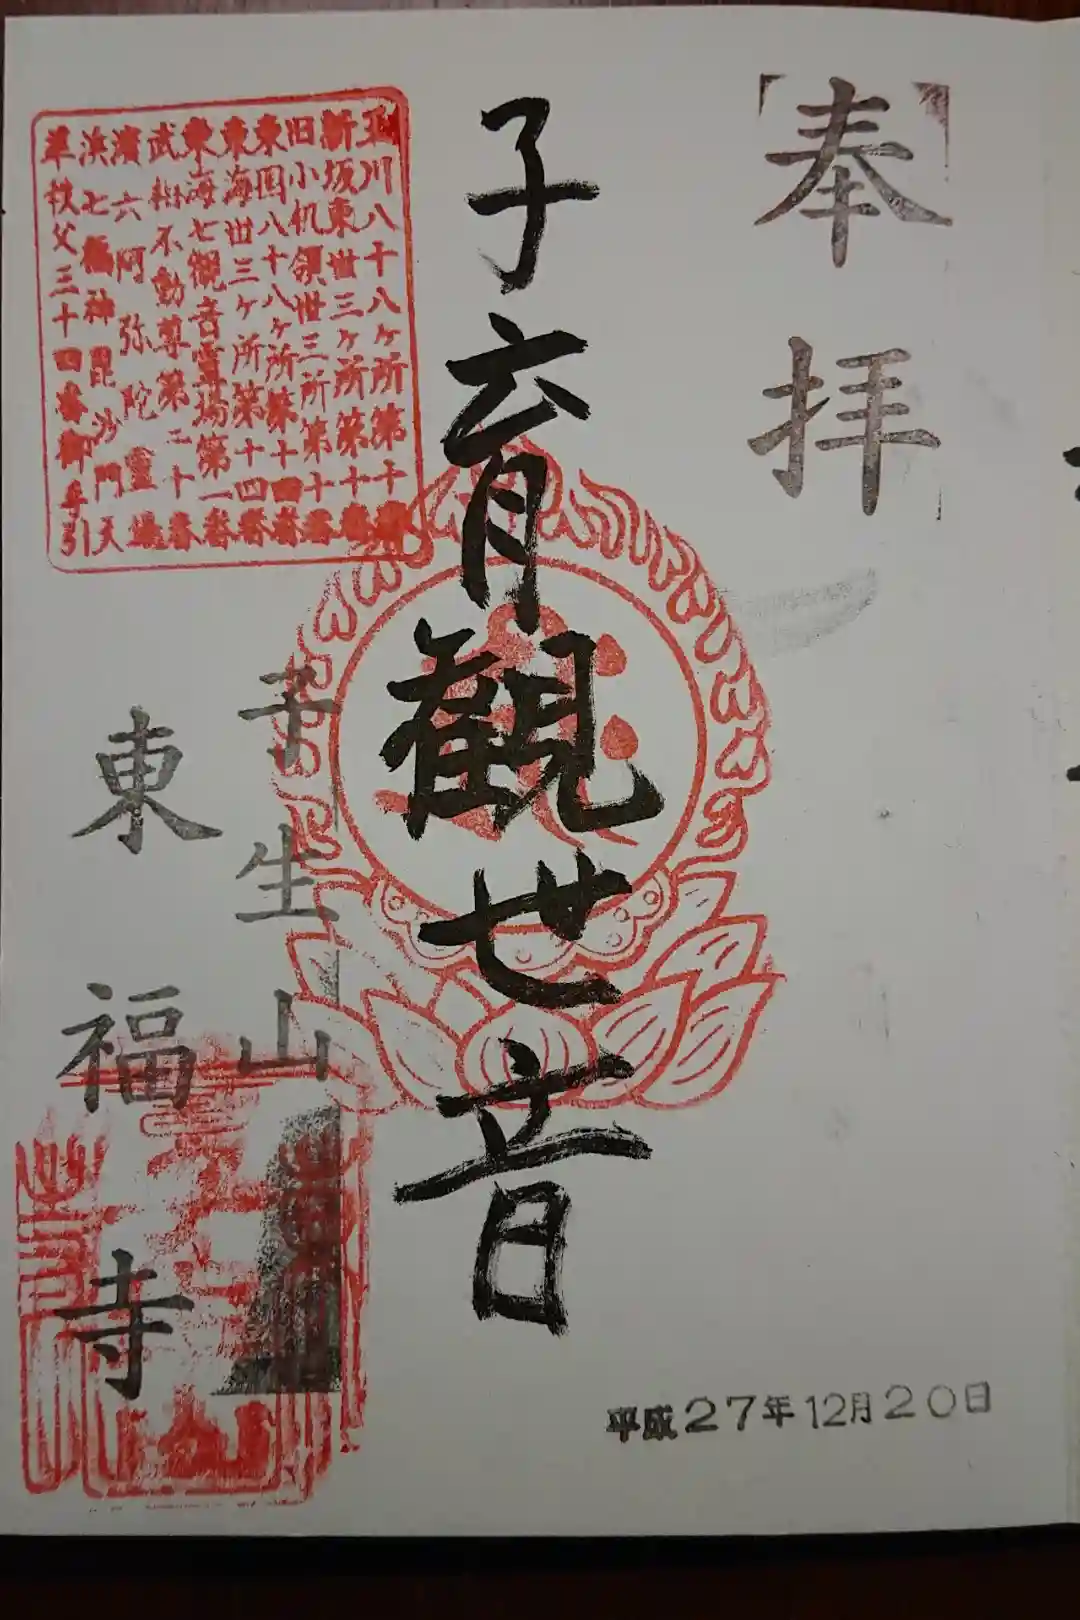 奉拝
子育観世音
玉川八十八ヶ所第十番
新坂東丗三ヶ所第十番
旧小机領丗三所第十番
東国八十八ヶ所第十四番
東海丗三ヶ所第十四番
東海七観音霊場第一番
武相不動尊第二十番
濱六阿弥陀霊場
浜七福神毘沙門天
準秩父三十四番御手引
子生山
東福寺
平成27年12月20日